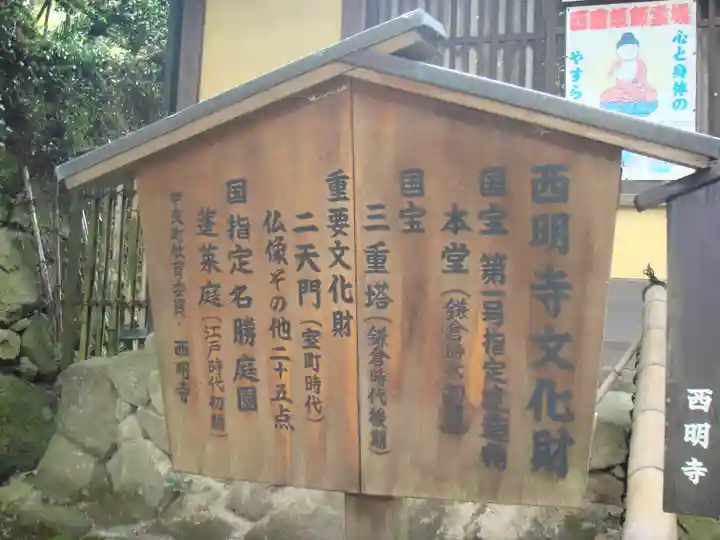 西明寺文化財
国宝 第一号指定建造物
本堂(鎌倉時代初期)
国宝
三重塔(鎌倉時代後期)
重要文化財
二天門(室町時代)
仏像その他二十五点
国指定名勝庭園
蓬莱庭(江戸時代初期)
甲良町教育委員・西明寺
心と身体の
やすら
西明寺